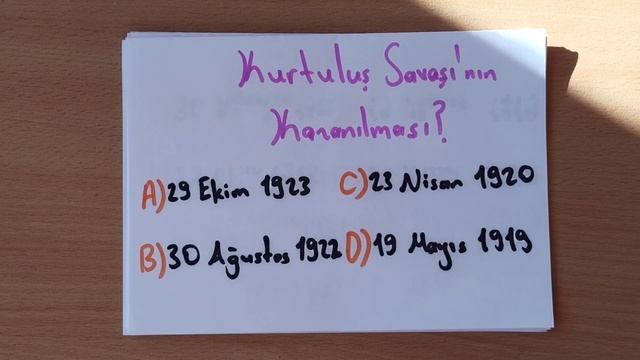 Kurtuluş Savaşı'nın
Kazanılması?
A) 29 Ekim 1923
B) 30 Ağustos 1922
C) 23 Nisan 1920
D) 19 Mayıs 1919